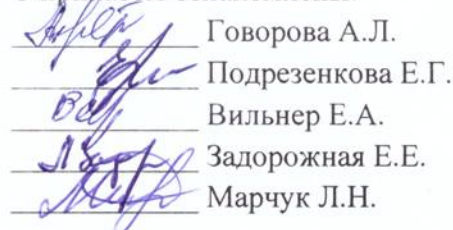 Говорова А.Л.
Подрезенкова Е.Г.
Вильнер Е.А.
Задорожная Е.Е.
Марчук Л.Н.